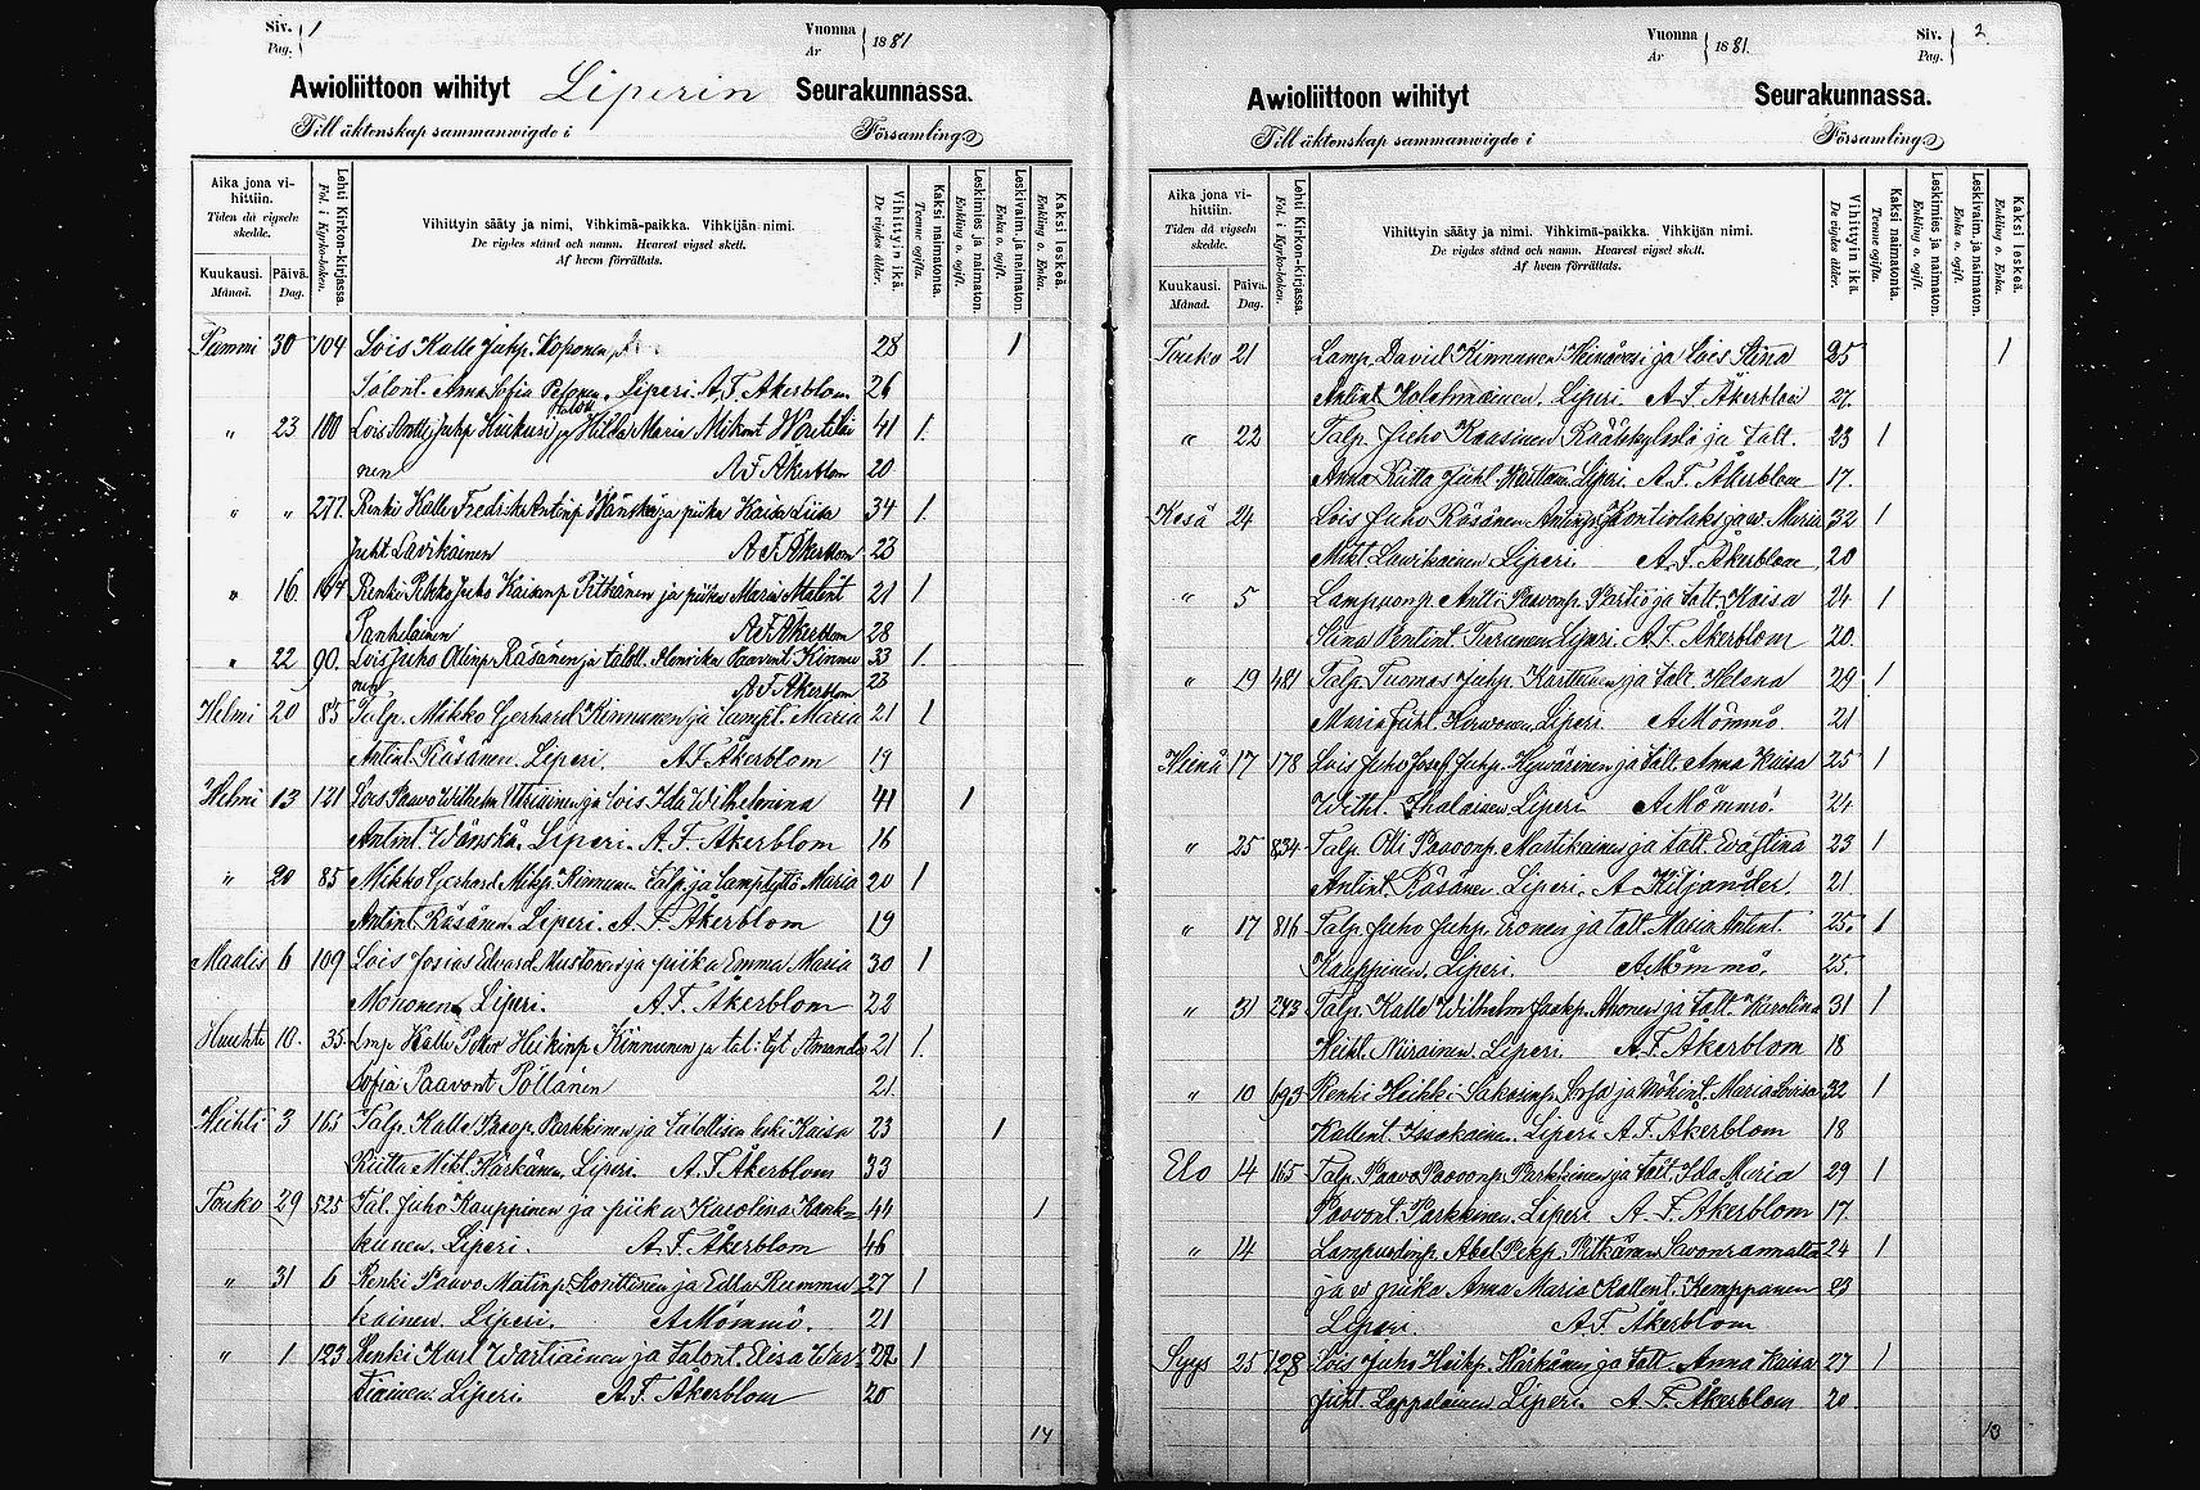 Siv. 1
Pag.
Vuonna 1881
År
Awioliittoon wihityt Liperin Seurakunnassa.
Till äktenskap sammanwigde i Församling
Aika jona vihittiin.
Tiden då vigseln skedde.
Kuukausi. Månad.
Päivä. Dag.
Lehti Kirkon-kirjassa. Fol. i Kyrko-boken.
Vihittyin sääty ja nimi, Vihkimä-paikka. Vihkijän nimi.
De vigdes stånd och namn. Hvarest vigsel skett.
Af hvem förrättats.
Vihittyin ikä. De vigdes ålder.
Kaksi naimatonta. Tvenne ogifta.
Leskimies ja naimaton. Enkling o. ogift.
Leskivaim. ja naimaton. Enka o. ogift.
Kaksi leskeä. Enkling o. Enka.
Tammi 30 104 Lois Kalle Juhp. Koponen 28 1
Talont. Anna Sofia Pesonen. Liperi. A. F. Åkerblom. 26
" 23 100 Lois Antti Juhp Hiukusi ja talon Hilda Maria Mikont Wäntiläi 41 1.
nen A F Åkerblom 20
" " 277. Renki Kalle Fredrik Antinp Wänskä ja piika Kaisa Liisa 34 1.
Juht Lavikainen A F Åkerblom 23
" 16. 164 Renki Pekko Juho Kaisanp Pitkänen ja piika Maria Matint 21 1
Pantelainen A F Åkerblom 28
" 22 90. Lois Juho Ollinp Räsänen ja taloll. Henrika Paavint Kinnu 33 1.
nen A F Åkerblom 23
Helmi 20 85 Talp. Mikko Gerhard Kinnunen ja lampt. Maria 21 1
Antint. Räsänen. Liperi. A F Åkerblom 19
Helmi 13 121 Lois Paavo Wilhelm Utriainen ja lois Ida Wilhelmina 41 1
Antint. Wänskä. Liperi. A. F. Åkerblom 16
" 20 85 Mikko Gerhard Mikp. Kinnunen talp. ja lamptyttö Maria 20 1
Antint Räsänen. Liperi. A. F. Åkerblom 19
Maalis 6 109 Lois Josias Edvard Mustonen ja piika Emma Maria 30 1
Mononen Liperi. A. F. Åkerblom 22
Huuhti 10. 35. Lmp Kalle Peter Heikinp Kinnunen ja tal: tyt Amanda 21 1.
Sofia Paavont Pöllänen 21.
Huhti 3 165 Talp. Kalle Paavp. Parkkinen ja talollisen leski Kaisa 23 1
Riitta Mikl. Härkänen, Liperi. A. F Åkerblom 33
Touko 29 525 Tal. Juho Kauppinen ja piika Karolina Kaak= 44 1
kunen. Liperi. A. F. Åkerblom 46
" 31 6 Renki Paavo Matinp. Konttinen ja Edla Rummu= 27 1
kainen Liperi. A Mömmö. 21
" 1 123 Renki Karl Wartiainen ja talont. Elisa War= 22 1
tiainen. Liperi. A. F. Åkerblom 20
14
Vuonna 1881.
År
Siv. 2
Pag.
Awioliittoon wihityt Seurakunnassa.
Till äktenskap sammanwigde i Församling
Aika jona vihittiin.
Tiden då vigseln skedde.
Kuukausi. Månad.
Päivä. Dag.
Lehti Kirkon-kirjassa. Fol. i Kyrko-boken.
Vihittyin sääty ja nimi. Vihkimä-paikka. Vihkijän nimi.
De vigdes stånd och namn. Hvarest vigsel skett.
Af hvem förrättats.
Vihittyin ikä. De vigdes ålder.
Kaksi naimatonta. Tvenne ogifta.
Leskimies ja naimaton. Enkling o. ogift.
Leskivaim. ja naimaton. Enka o. ogift.
Kaksi leskeä. Enkling o. Enka.
Touko 21 Lamp. David Kinnunen Heinävesi ja lois Stina 25 1
Antint Kolehmainen. Liperi. A F Åkerblom 27.
" 22 Talp. Juho Kaasinen Rääkkylästä ja talt. 23 1
Anna Riitta Juhl. Karttunen Liperi. A. F. Åkerblom 17.
Kesä 24 Lois Juho Räsänen Antinp. Kontiolaks ja w. Maria 32 1
Mikt Laurikainen Liperi. A. F. Åkerblom 20
" 5 Lampuonp. Antti Paavonp. Partio ja talt. Kaisa 24 1
Stina Pentint. Turunen Liperi. A. F. Åkerblom 20.
" 19 481 Talp. Tuomas Juhp. Karttunen ja talt. Helena 29 1
Maria Juhl. Hirvonen, Liperi. A Mömmö. 21
Heinä 17 178 Lois Juho Josef Juhp. Hyvärinen ja talt Anna Kaisa 25 1
Wilhl. Ihalainen Liperi A Mömmö. 24
" 25 834 Talp. Olli Paavonp. Martikainen ja talt. Eva Stina 23 1
Antint. Räsänen Liperi. A Kiljander. 21.
" 17 816 Talp. Juho Juhp. Eronen ja talt. Maria Antint. 25. 1
Kauppinen. Liperi. A Mömmö. 25.
" 31 243 Talp. Kalle Wilhelm Jaakp. Ahonen ja talt. Karolina 31 1
Heikl. Niiranen. Liperi. A. F. Åkerblom 18
" 10 693 Renki Heikki Sakarinp. Sorsa ja mökint. Maria Lovisa 32 1
Kallent. Issakainen. Liperi A. F. Åkerblom 18
Elo 14 165 Talp. Paavo Paavonp. Parkkinen ja talt. Ida Maria 29 1
Paavont. Parkkinen. Liperi A. F. Åkerblom 17.
" 14 Lampuodinp. Abel Pekp. Pitkänen Savonrannalta 24 1
ja w piika Anna Maria Kallent. Kemppanen 23
Liperi. A. F. Åkerblom
Syys 25 128 Lois Juho Heikp. Härkänen ja talt. Anna Kaisa 27 1
Juht. Lappalainen Liperi. A. F. Åkerblom 20.
13